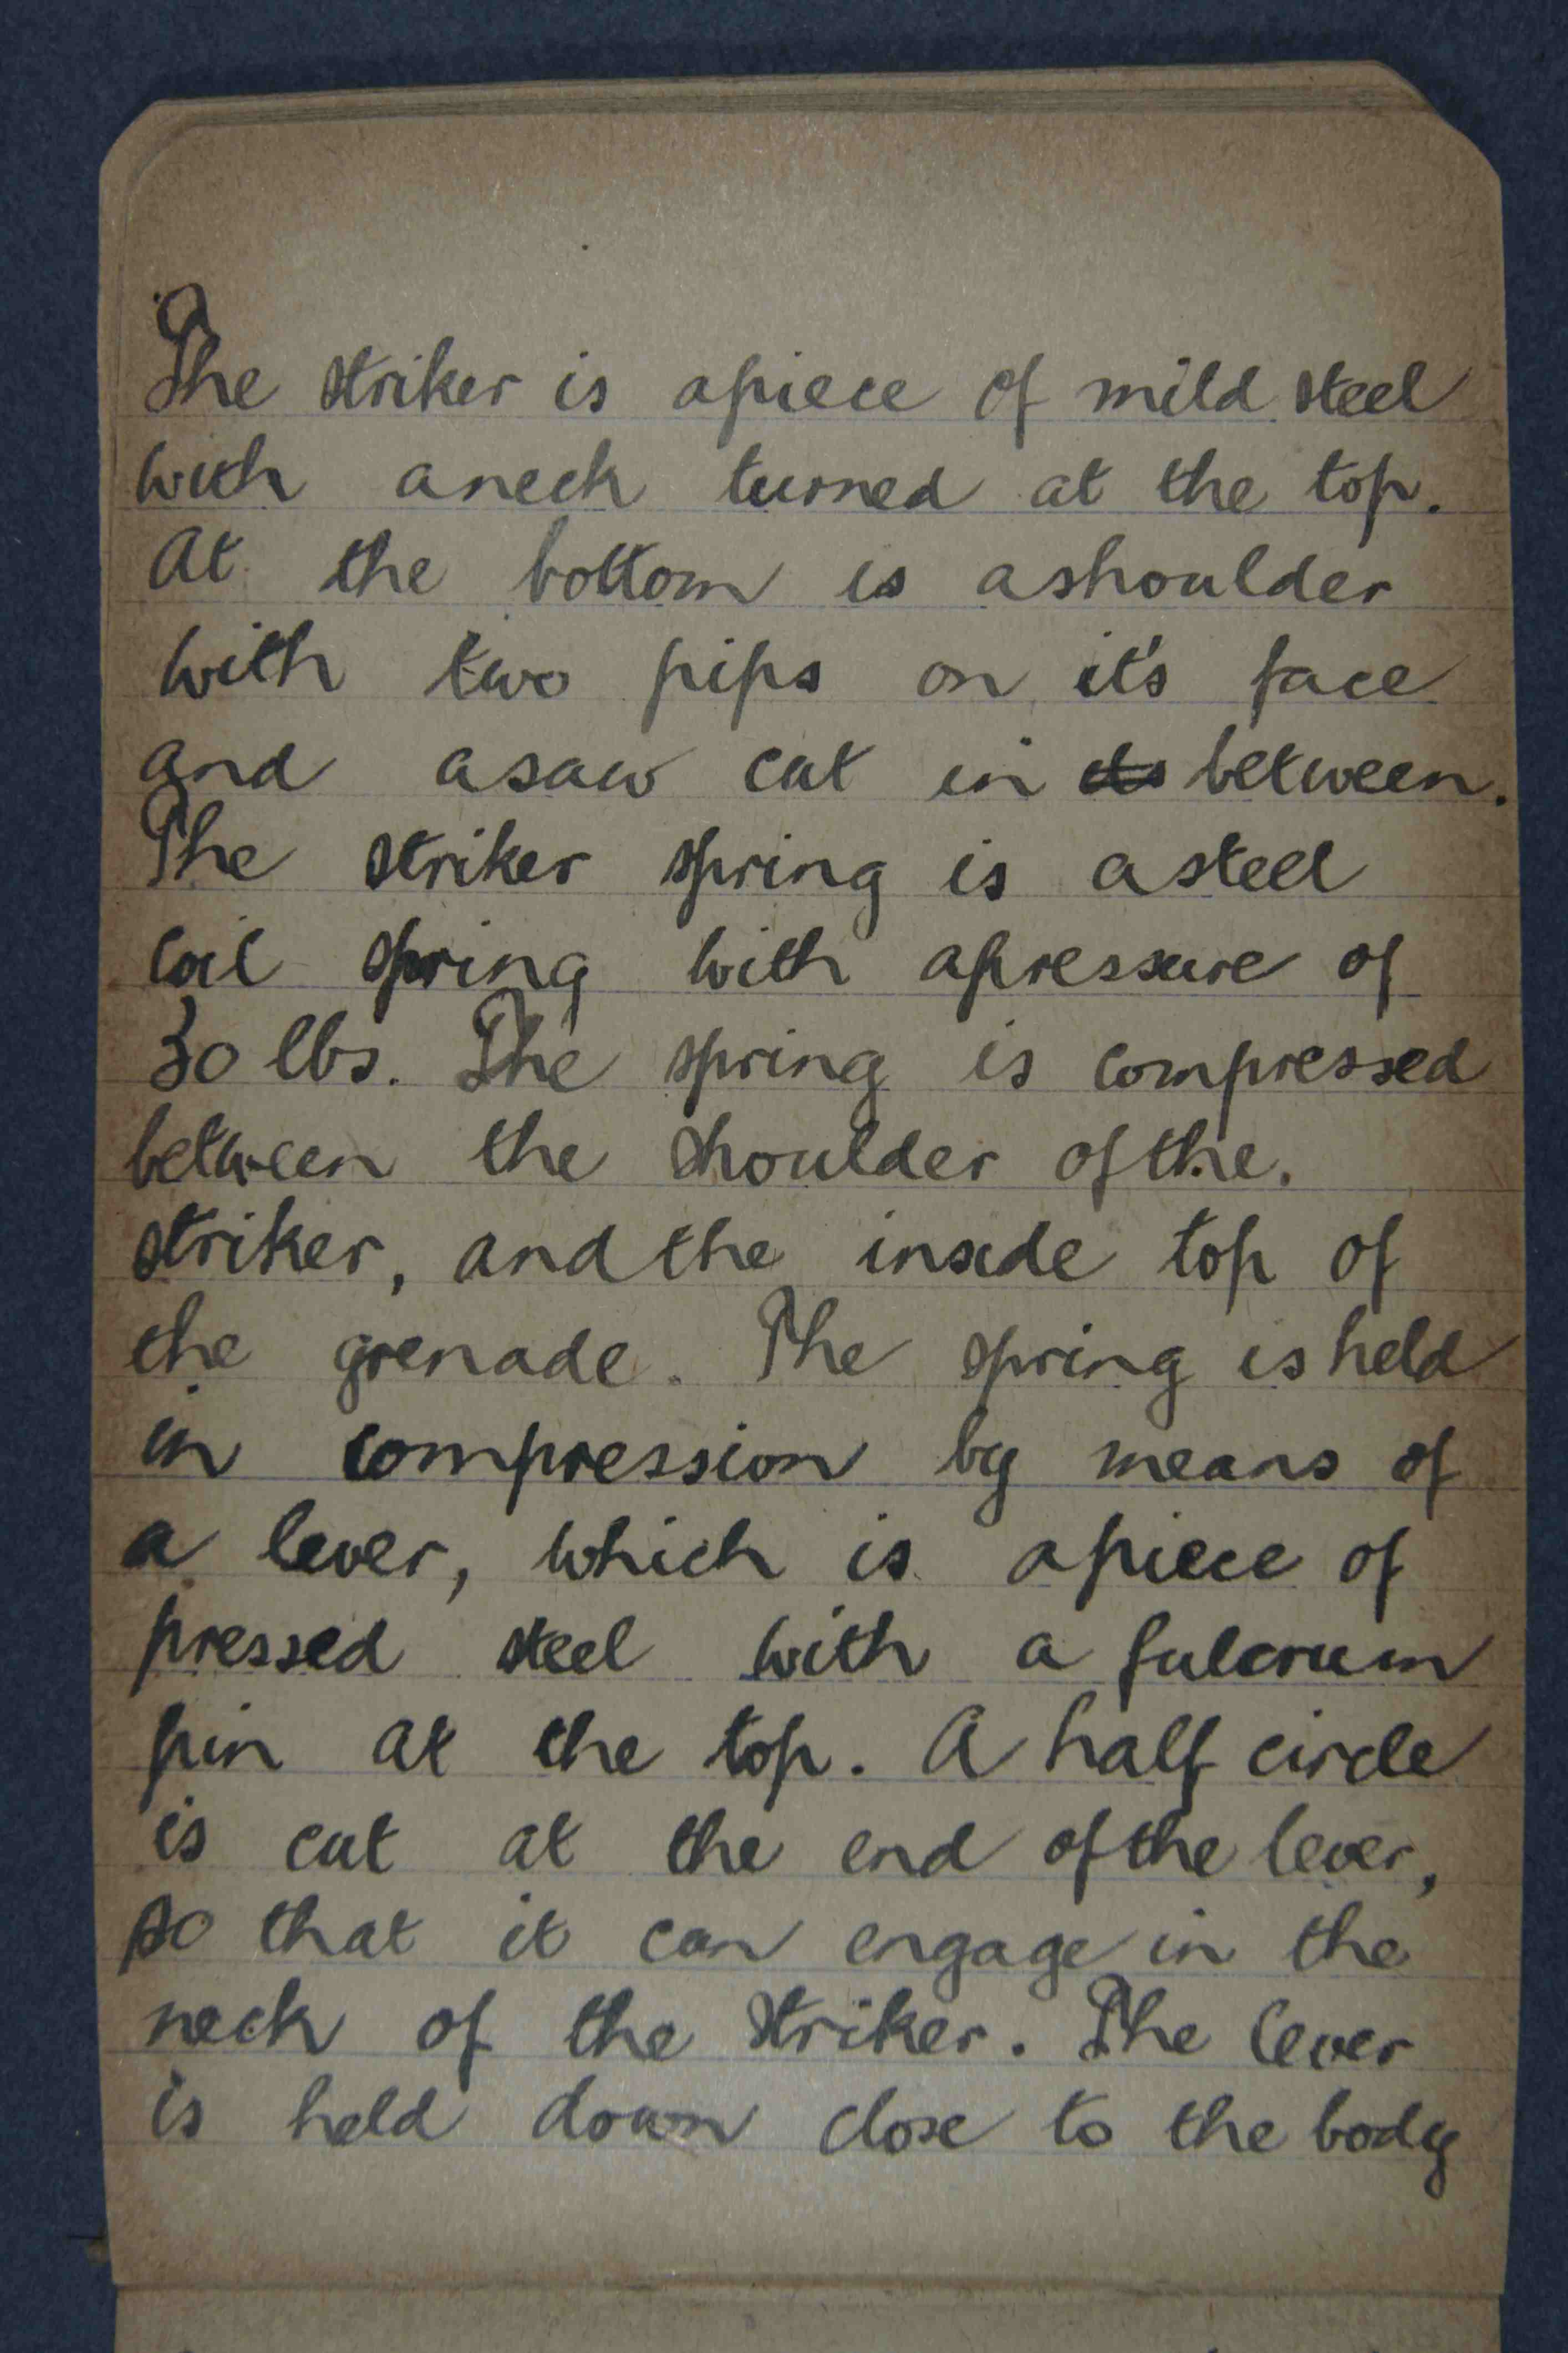 The striker is a piece of mild steel
with a neck turned at the top.
At the bottom is a shoulder
with two pips on it's face
and a saw cut in its between.
The striker spring is a steel
coil spring with a pressure of
30 lbs. The spring is compressed
between the shoulder of the.
striker, and the inside top of
the grenade. The spring is held
in compression by means of
a lever, which is a piece of
pressed steel with a fulcrum
pin at the top. A half circle
is cut at the end of the lever,
so that it can engage in the
neck of the striker. The lever
is held down close to the body